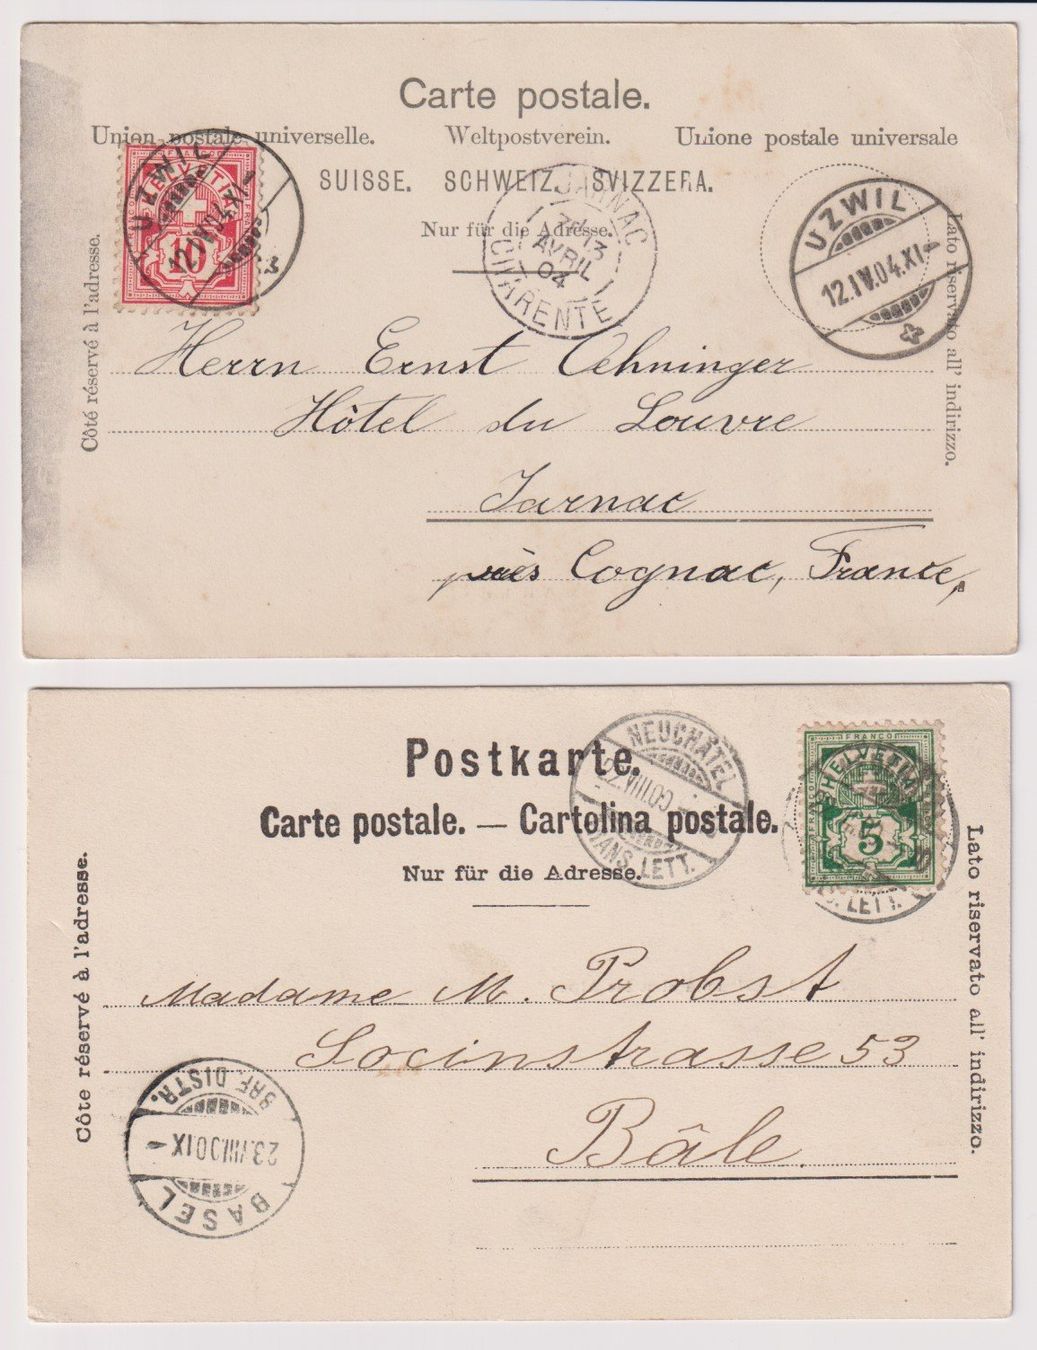 Carte postale.
Union postale universelle. Weltpostverein. Unione postale universale
SUISSE. SCHWEIZ. SVIZZERA.
Nur für die Adresse.
Côté réservé à l'adresse.
Lato riservato all' indirizzo.
FRANCO
HELVETIA
10
UZWIL
12.IV.04.XI-
JARNAC
13
AVRIL
04
CHARENTE
UZWIL
12.IV.04.XI-
Herrn Ernst Oehninger
Hôtel du Louvre
Jarnac
près Cognac, France,
Postkarte.
Carte postale. — Cartolina postale.
Nur für die Adresse.
Côte réservé à l'adresse.
Lato riservato all' indirizzo.
NEUCHÂTEL
LETT.
FRANCO
HELVETIA
5
LETT.
Madame M. Probst
Socinstrasse 53
Bâle.
BRF. DISTR.
23.VIII.00.IX-
BASEL